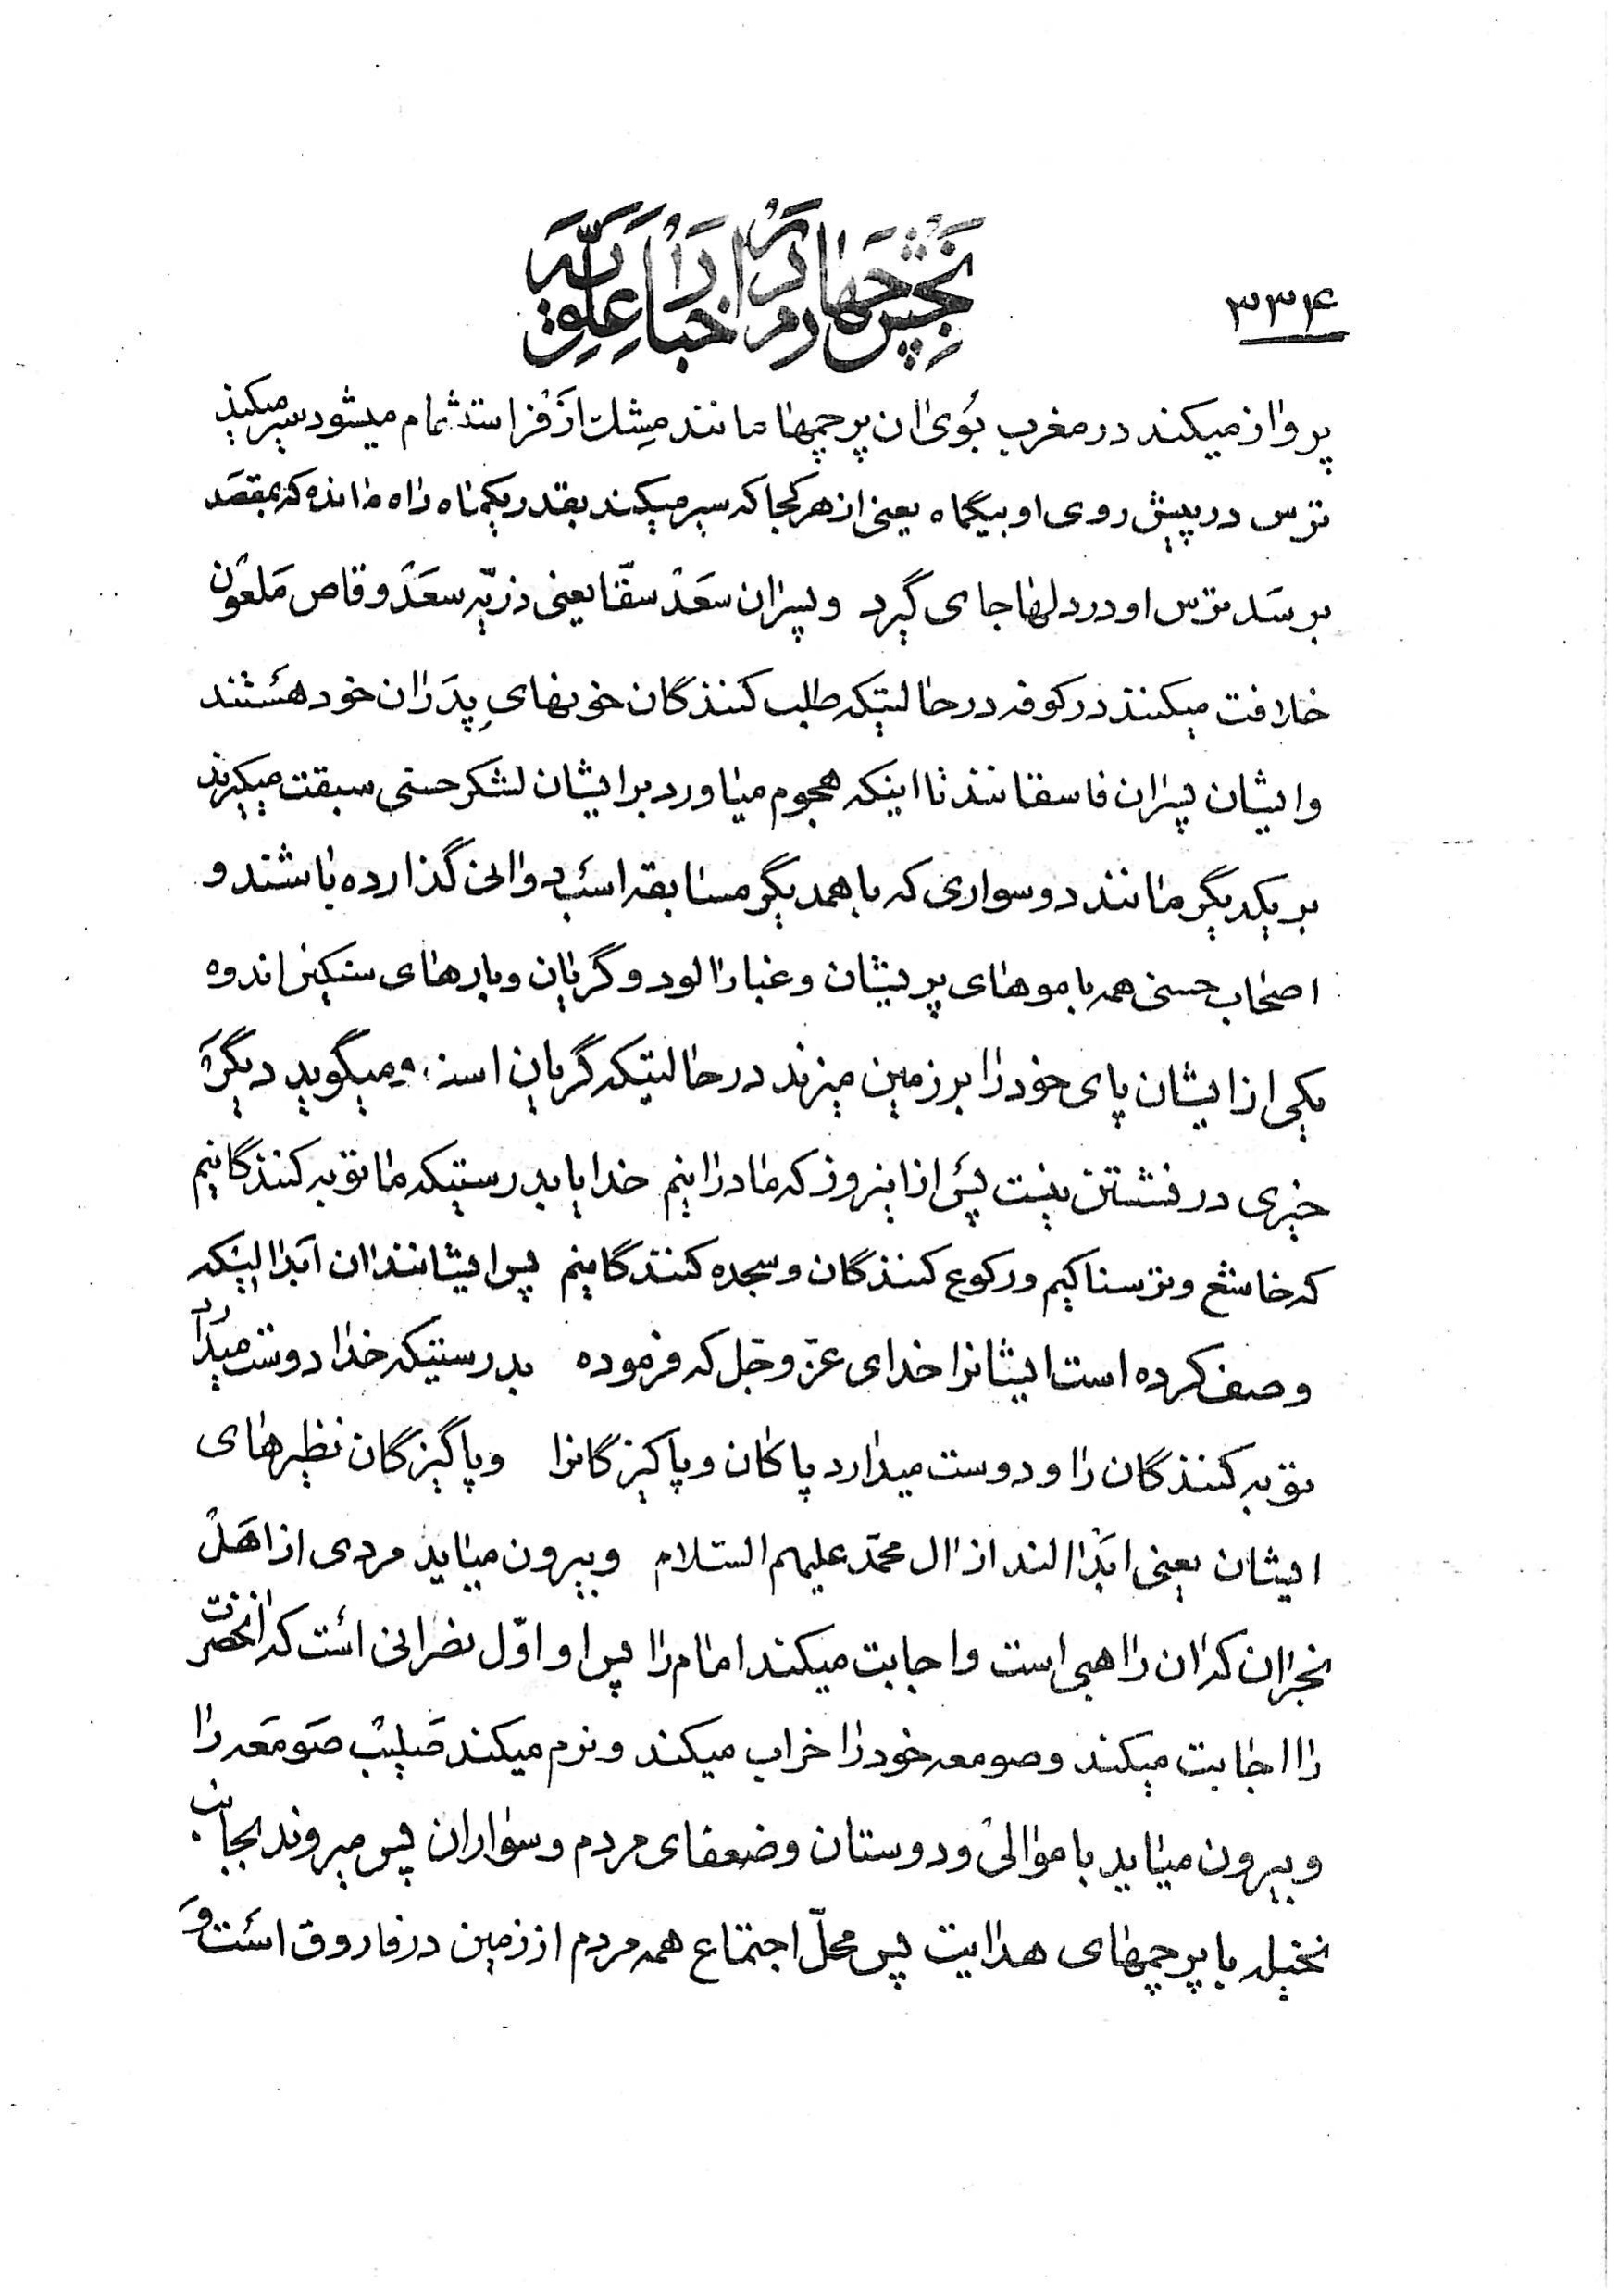 ۳۳۴
بخش چهارم در اخبار علویه
پرواز میکند در مغرب بوی ان پرچمها مانند مشک از فر است تمام میشود سیر میکند
ترس در پیش روی او بیکماه یعنی از هر کجا که سیر میکند بقدر یکماه راه مانده که بمقصد
برسد ترس او در دلها جای گیرد و پسران سعد سقا یعنی ذریه سعد وقاص ملعون
خلافت میکنند در کوفه در حالتیکه طلب کنندگان خونهای پدران خود هستند
و ایشان پسران فاسقانند تا اینکه هجوم میاورد بر ایشان لشکر حسنی سبقت میگیرند
بر یکدیگر مانند دو سواری که با همدیگر مسابقه اسب دوانی گذارده باشند و
اصحاب حسنی همه با موهای پریشان و غبارالود و گریان و بارهای سنگین اندوه
یکی از ایشان پای خود را بر زمین میزند در حالتیکه گریان است و میگوید دیگر
خیری در نشستن نیست پس از اینروز که ما در انیم خدایا بدرستیکه ما توبه کنندگانیم
که خاشع و ترسناکیم و رکوع کنندگان و سجده کنندگانیم پس ایشانند ان ابدالیکه
وصف کرده است ایشانرا خدای عز و جل که فرموده بدرستیکه خدا دوست میدارد
توبه کنندگان را و دوست میدارد پاکان و پاکیزگانرا و پاکیزگان نظیرهای
ایشان یعنی ابدالند از ال محمد علیهم السلام و بیرون میاید مردی از اهل
نجران که ان راهبی است و اجابت میکند امام را پس او اول نصرانی است که انحضرت
را اجابت میکند و صومعه خود را خراب میکند و نرم میکند صلیب صومعه را
و بیرون میاید با موالی و دوستان و ضعفای مردم و سواران پس میروند بجانب
نخیله با پرچمهای هدایت پس محل اجتماع همه مردم از زمین در فاروق است و